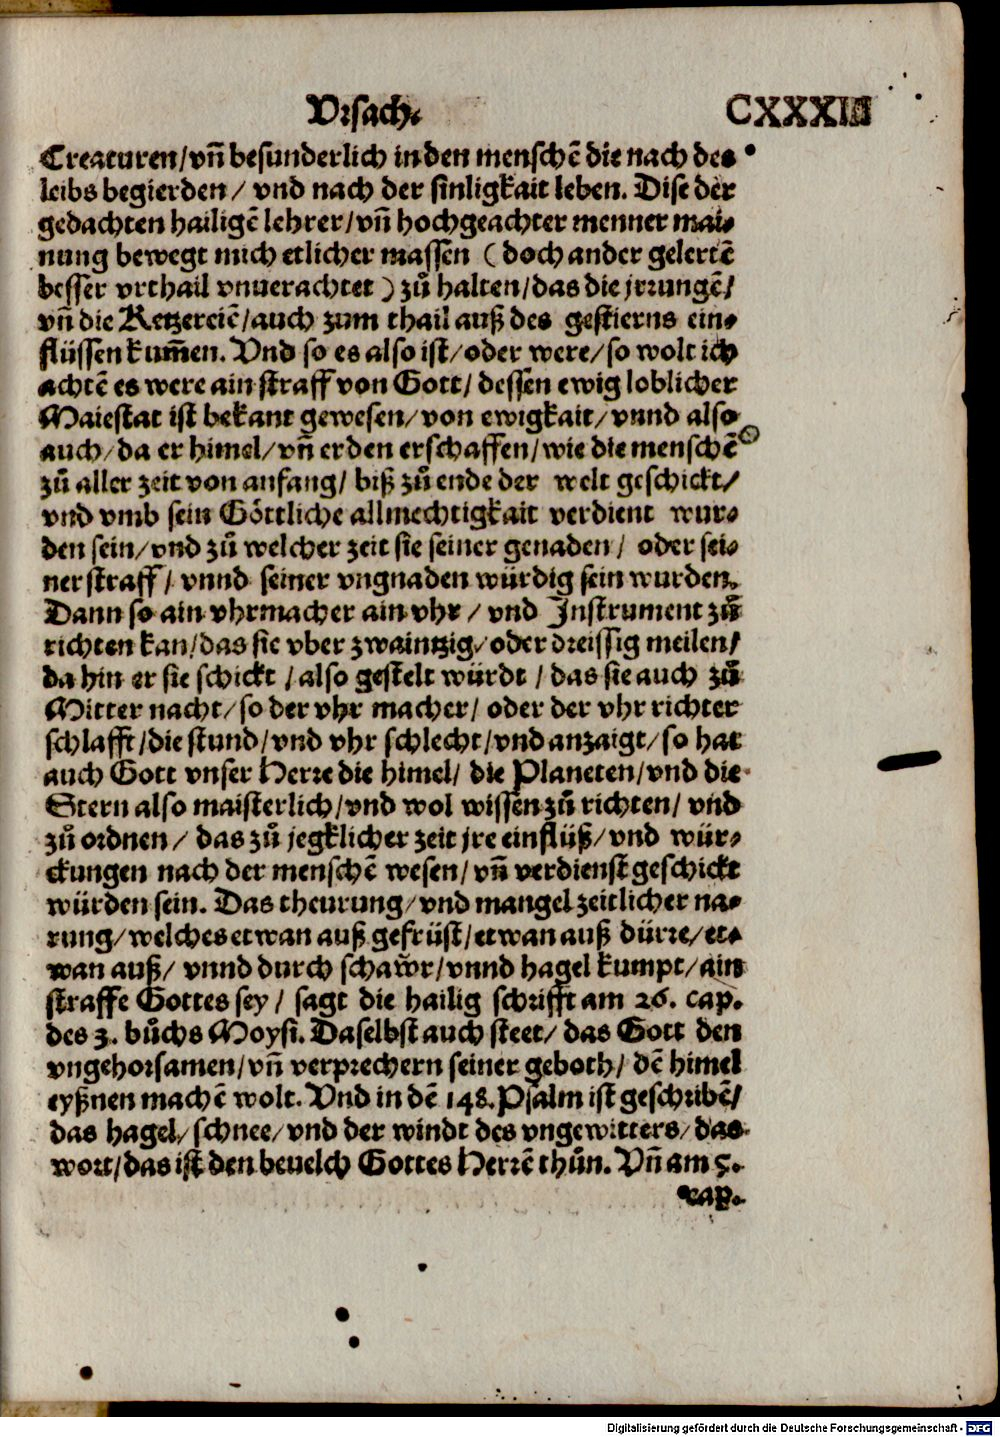 Vrsach.
CXXXIII
Creaturen/vñ besunderlich in den menschē die nach des
leibs begierden/ vnd nach der sinligkait leben. Dise der
gedachten hailigē lehrer/vñ hochgeachter menner mai-
nung bewegt mich etlicher massen (doch ander gelertē
besser vrthail vnuerachtet) zů halten/das die jrrungē/
vñ die Ketzereiē/auch zum thail auß des gestierns ein-
flüssen kum̃en. Vnd so es also ist/oder were/so wolt ich
achtē es were ain straff von Gott/ dessen ewig loblicher
Maiestat ist bekant gewesen/von ewigkait/vnnd also
auch/da er himel/vñ erden erschaffen/wie die menschē
zů aller zeit von anfang/ biß zů ende der welt geschickt/
vnd vmb sein Göttliche allmechtigkait verdient wur-
den sein/vnd zů welcher zeit sie seiner genaden/ oder sei-
ner straff/ vnnd seiner vngnaden würdig sein wurden.
Dann so ain vhrmacher ain vhr/ vnd Instrument zů
richten kan/das sie vber zwaintzig/oder dreissig meilen/
da hin er sie schickt/also gestelt würdt/das sie auch zů
Mitter nacht/so der vhr macher/ oder der vhr richter
schlafft/die stund/vnd vhr schlecht/vnd anzaigt/so hat
auch Gott vnser Herre die himel/ die Planeten/vnd die
Stern also maisterlich/vnd wol wissen zů richten/ vnd
zů ordnen/ das zů jegklicher zeit jre einflüß/vnd wür-
ckungen nach der menschē wesen/vñ verdienst geschickt
würden sein. Das theurung/vnd mangel zeitlicher na-
rung/welches etwan auß gefrüst/etwan auß dürre/et-
wan auß/ vnnd durch schaẘr/vnnd hagel kumpt/ain
straffe Gottes sey/ sagt die hailig schrifft am 26. cap.
des 3. bůchs Moysi. Daselbst auch steet/ das Gott den
vngehorsamen/vñ verprechern seiner geboth/ dē himel
eyßnen machē wolt. Vnd in dē 148. Psalm ist geschribē/
das hagel/schnee/vnd der windt des vngewitters/das
wort/das ist den beuelch Gottes Herrē thůn. Vñ am 5.
cap.
Digitalisierung gefördert durch die Deutsche Forschungsgemeinschaft - DFG